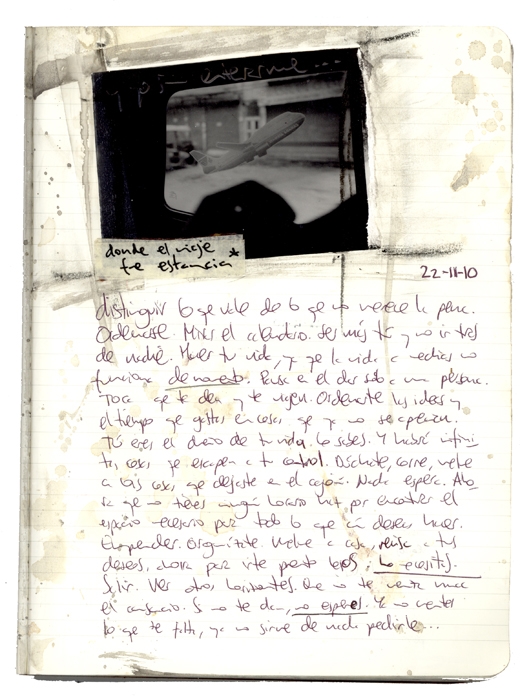 donde el viaje *
fue estancia
22-11-10
distinguir lo que vale de lo que no merece la pena.
Ordenarse. Mirar el calendario. Ser más tú y no ir tras
de nadie. Mover tu vida, ya que la vida a medias no
funciona de momento. Pensar en el dar sólo a una persona.
Toca que te den y te cuiden. Ordenarte las ideas y
el tiempo que gastas en cosas que ya no se aprecian.
Tú eres el dueño de tu vida. Lo sabes. Y habrá infini-
tas cosas que escapen a tu control. Dúchate, corre, vuelve
a las cosas que dejaste en el cajón. Nada espera. Aho-
ra que no tienes ningún horario haz por encontrar el
espacio necesario para todo lo que deseas hacer.
Emprender. Organízate. Vuelve a casa, piensa a tus
deseos, ahorra para irte pronto lejos. Lo necesitas.
Salir. Ver otros horizontes. Que no te venza nunca
el cansancio. Si no te dan, no esperes. Ya no
lo que te falta, ya no sirve de nada pedirle...